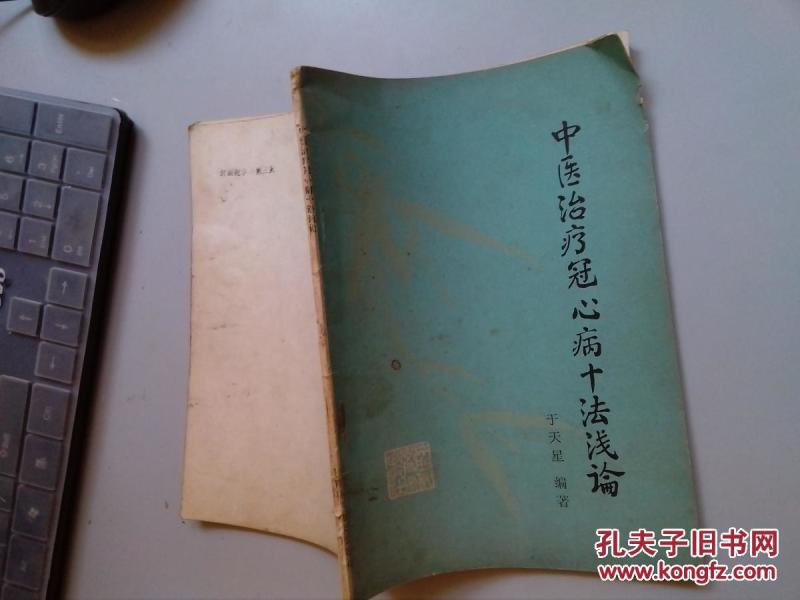 中医治疗冠心病十法浅論
于天星 编著
Enter
孔夫子旧书网
www.kongfz.com